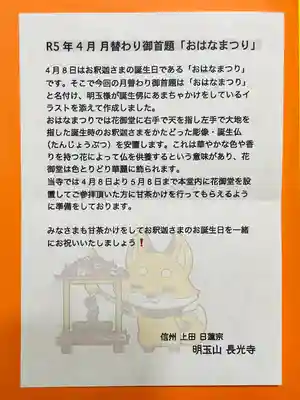 R5年4月 月替わり御首題「おはなまつり」
４月８日はお釈迦さまの誕生日である「おはなまつり」
です。そこで今回の月替わり御首題は「はなまつり」
と名付け、明玉様が誕生佛にあまちゃかけをしているイ
ラストを添えて作成しました。
おはなまつりでは花御堂に右手で天を指し左手で大地を
指した誕生時のお釈迦さまをかたどった彫像・誕生仏
（たんじょうぶつ）を安置します。これは華やかな色や香
りを持つ花によって仏を供養するという意味があり、花
御堂は色とりどり華麗に飾られます。
当寺では４月８日より５月８日まで本堂内に花御堂を設
置してご参拝頂いた方に甘茶かけを行ってもらえるよう
に準備をしております。
みなさまも甘茶かけをしてお釈迦さまのお誕生日を一緒
にお祝いいたしましょう❗
信州 上田 日蓮宗
明玉山 長光寺